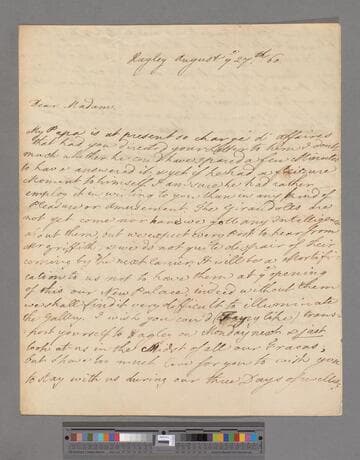 Hagley August ye 27.th 60
Dear Madam,
My Papa is at present so charge d'affaires
that had you directed your Letter to him I doubt
much whether he cou'd have spared a few Minutes
to have answered it, & yet if he had a leisure
Moment to himself I am sure he had rather
employ it in writing to you, than in any kind of
Pleasure or Amusement. The Girandoles are
not yet come nor have we got any Intelligence
about them, but we expect every Post to hear from
Mr Griffith, & we do not quite despair of their
coming by the next Carrier. It will be a Mortifi
cation to us not to have them at ye opening
of this our New Palace, indeed without them
we shall find it very difficult to illuminate
the Gallery. I wish you cou'd Fairy like trans=
port yourself to Hagley on Monday next & just
look at us in the Midst of all our Fracas,
but shou'd too much for you to wish you
to stay with us during our three Days